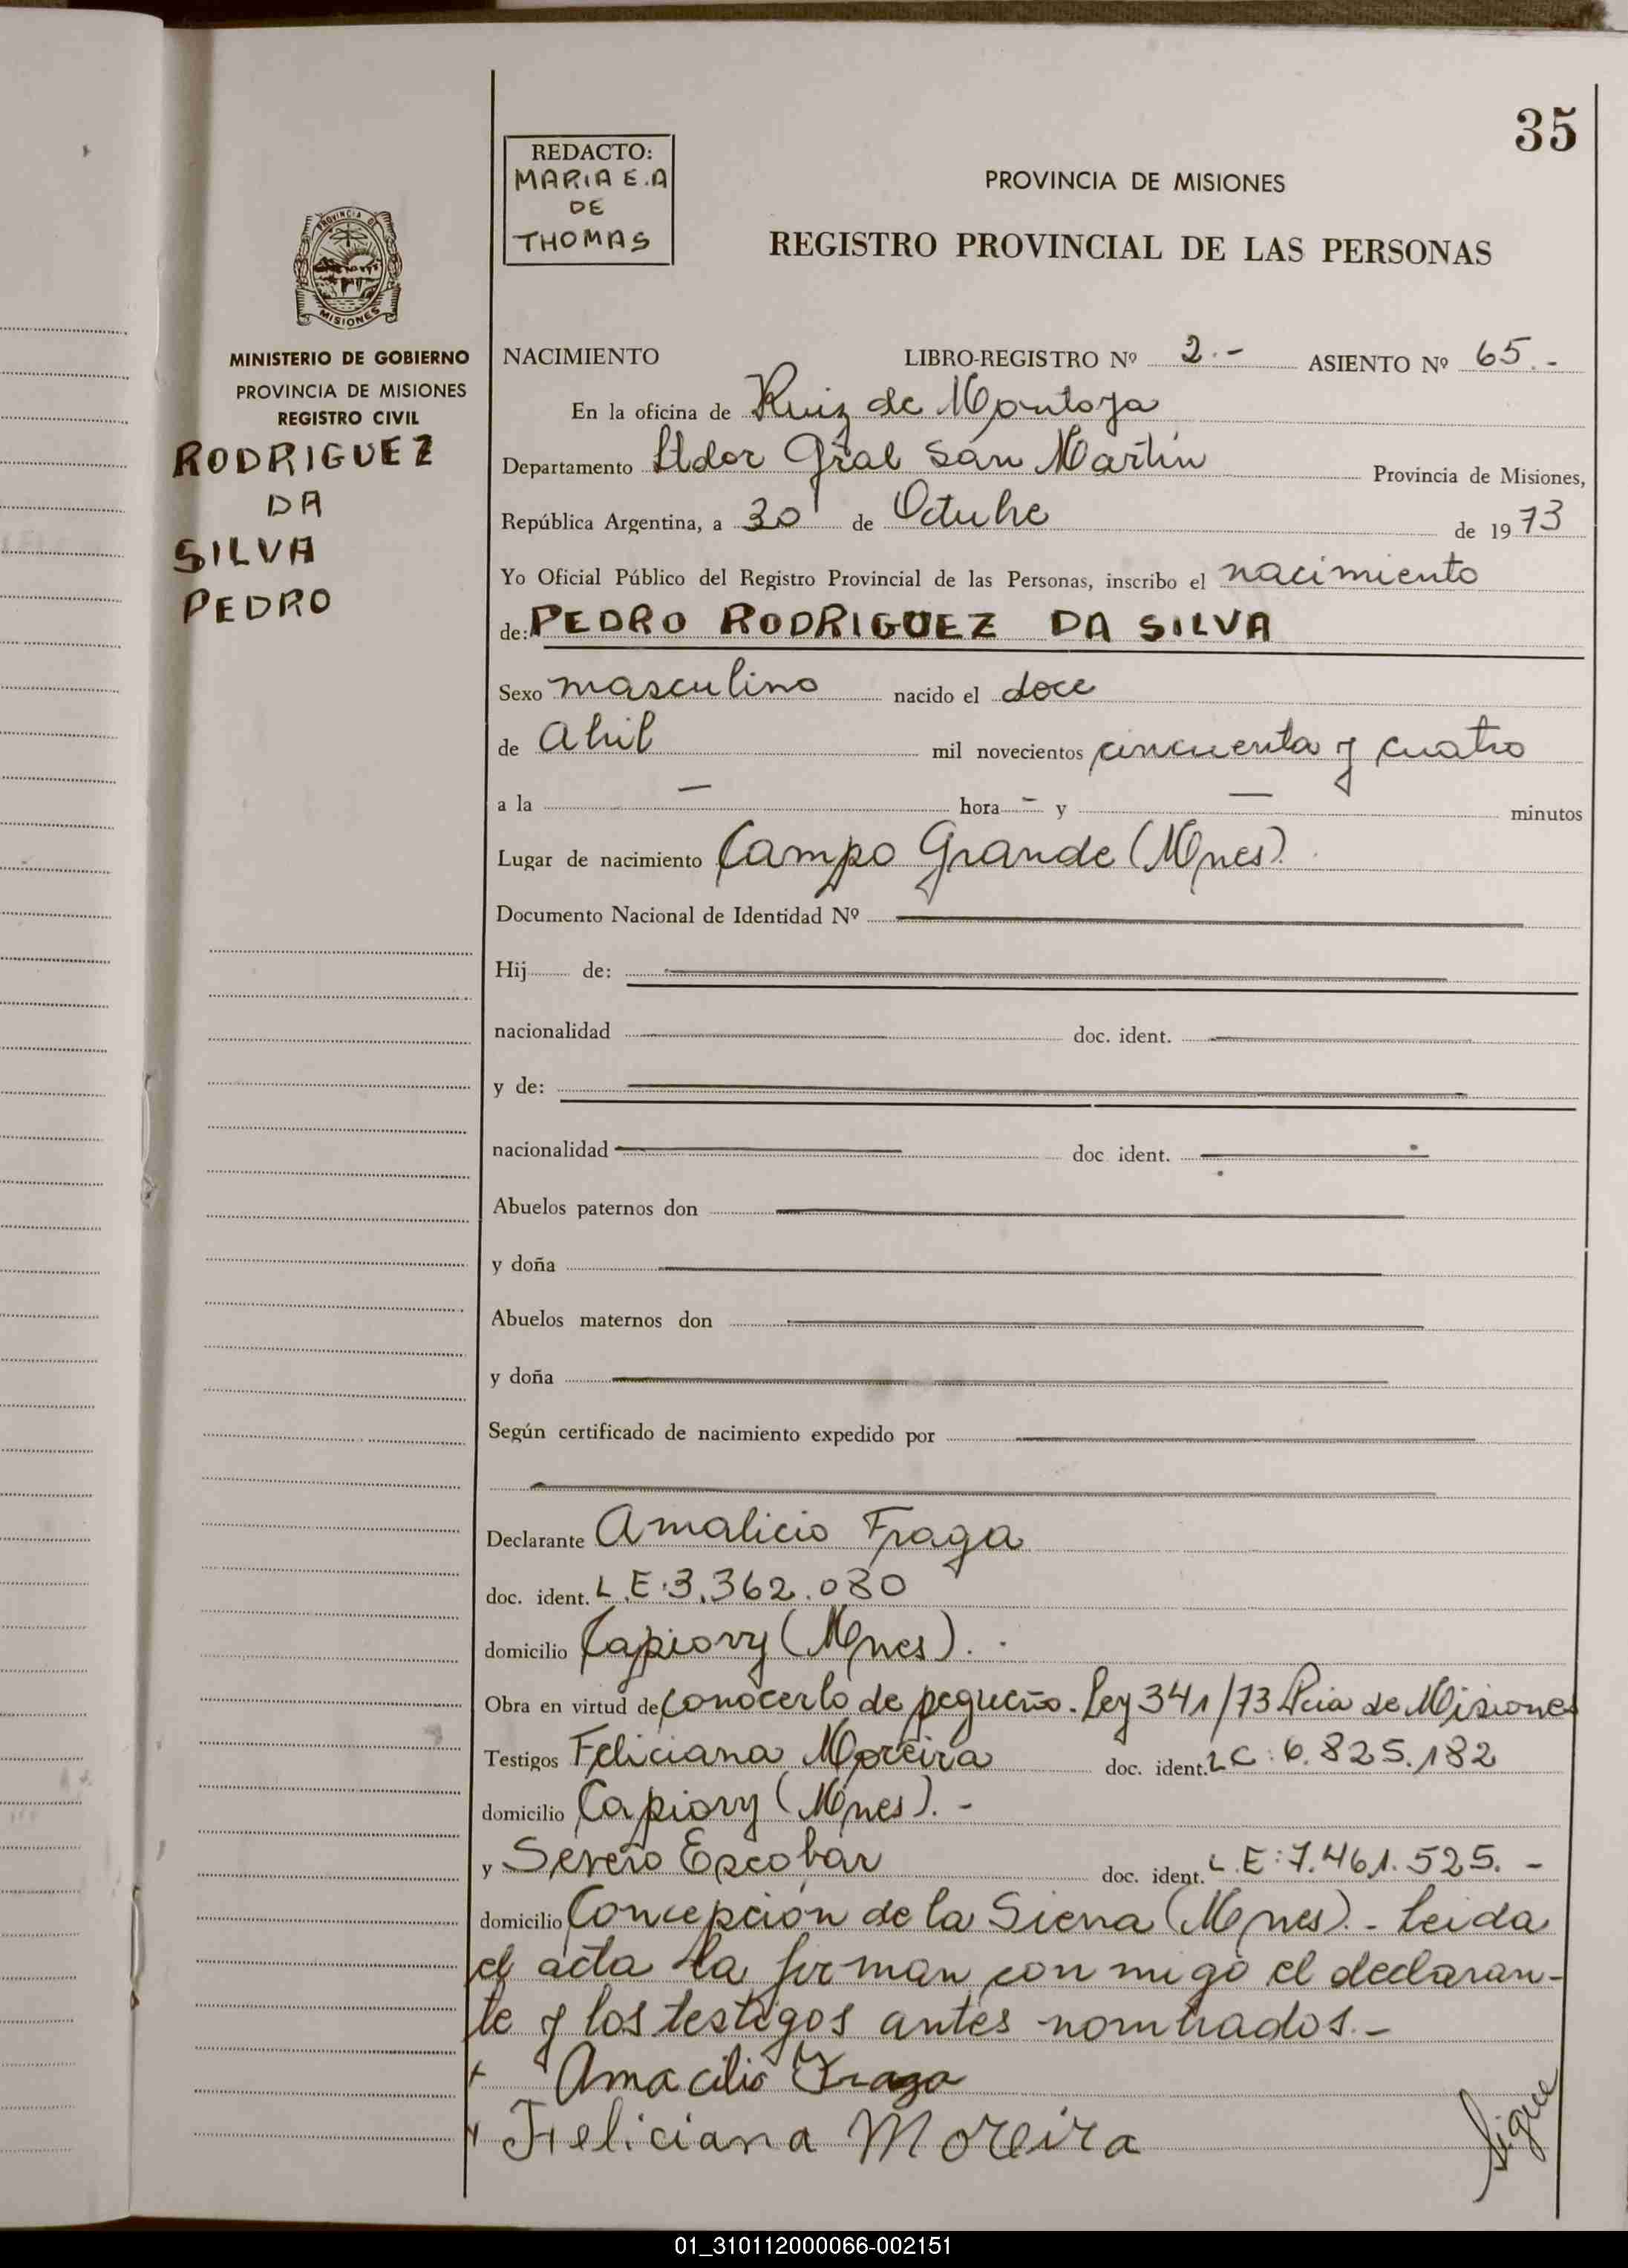 35
REDACTO:
MARIA E.A
DE
THOMAS
PROVINCIA DE MISIONES
REGISTRO PROVINCIAL DE LAS PERSONAS
PROVINCIA DE
MISIONES
MINISTERIO DE GOBIERNO
PROVINCIA DE MISIONES
REGISTRO CIVIL
RODRIGUEZ
DA
SILVA
PEDRO
NACIMIENTO LIBRO-REGISTRO Nº 2.- ASIENTO Nº 65.-
En la oficina de Ruiz de Montoya
Departamento Ldor Gral San Martín Provincia de Misiones,
República Argentina, a 30 de Octubre de 1973
Yo Oficial Público del Registro Provincial de las Personas, inscribo el nacimiento
de: PEDRO RODRIGUEZ DA SILVA
Sexo masculino nacido el doce
de Abril mil novecientos cincuenta y cuatro
a la — hora - y — minutos
Lugar de nacimiento Campo Grande (Mnes).
Documento Nacional de Identidad Nº
Hij de:
nacionalidad doc. ident.
y de:
nacionalidad doc ident.
Abuelos paternos don
y doña
Abuelos maternos don
y doña
Según certificado de nacimiento expedido por
Declarante Amalicio Fraga
doc. ident. L.E.3.362.080
domicilio Capiovy (Mnes).
Obra en virtud de conocerlo de pequeño. Ley 341/73 Pcia de Misiones
Testigos Feliciana Moreira doc. ident. LC: 6.825.182
domicilio Capiovy (Mnes).-
y Severo Escobar doc. ident. L.E: 7.461.525.-
domicilio Concepción de la Sierra (Mnes).- Leida
el acta la firman con migo el declaran-
te y los testigos antes nombrados.-
Amacilio Fraga
Feliciana Moreira
Sigue
01_310112000066-002151